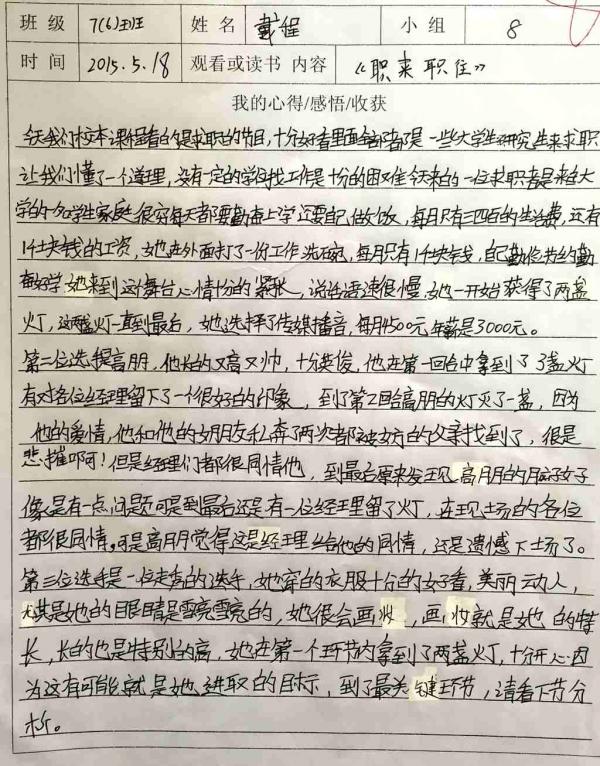 班级 7(6)班 姓名 戴程 小组 8
时间 2015.5.18 观看或读书 内容 《职来职往》
我的心得/感悟/收获
今天我们校本课程看的是求职的节目,十分好看里面全部都是一些大学生研究生来求职
让我们懂了一个道理,没有一定的学位找工作是十分的困难今天来的一位求职者是来自大
学的一名学生家庭很穷每天都要勤奋上学还要自己做饭,每月只有三四百的生活费,还有
1千块钱的工资,她在外面打了一份工作洗碗,每月只有1千块钱,自己勤俭节约勤
奋好学她来到这舞台心情十分的紧张,说话语速很慢,她一开始获得了两盏
灯,这两盏灯一直到最后,她选择了传媒播音,每月1500元年薪是3000元。
第二位选手是高朋,他长的又高又帅,十分英俊,他在第一回合中拿到了3盏灯
有对各位经理留下了一个很好的印象,到了第2回合高朋的灯灭了一盏,因为
他的爱情,他和他的女朋友私奔了两次都被女方的父亲找到了,很是
悲摧啊可!但是经理们都很同情他,到最后原来发现高朋的用词好
像是有一点问题可是到最后还是有一位经理留了灯,在现场的各位
都很同情。可是高朋觉得这是经理给他的同情,还是遗憾下场了。
第三位选手是一位走秀的选手,她穿的衣服十分的好看,美丽动人,
尤其是她的眼睛是雪亮雪亮的,她很会画妆,画妆就是她的特
长,长的也是特别的高,她在第一个环节内拿到了两盏灯,十分开心因
为这有可能就是她进取的目标,到了最关键环节,请看下节分
析。